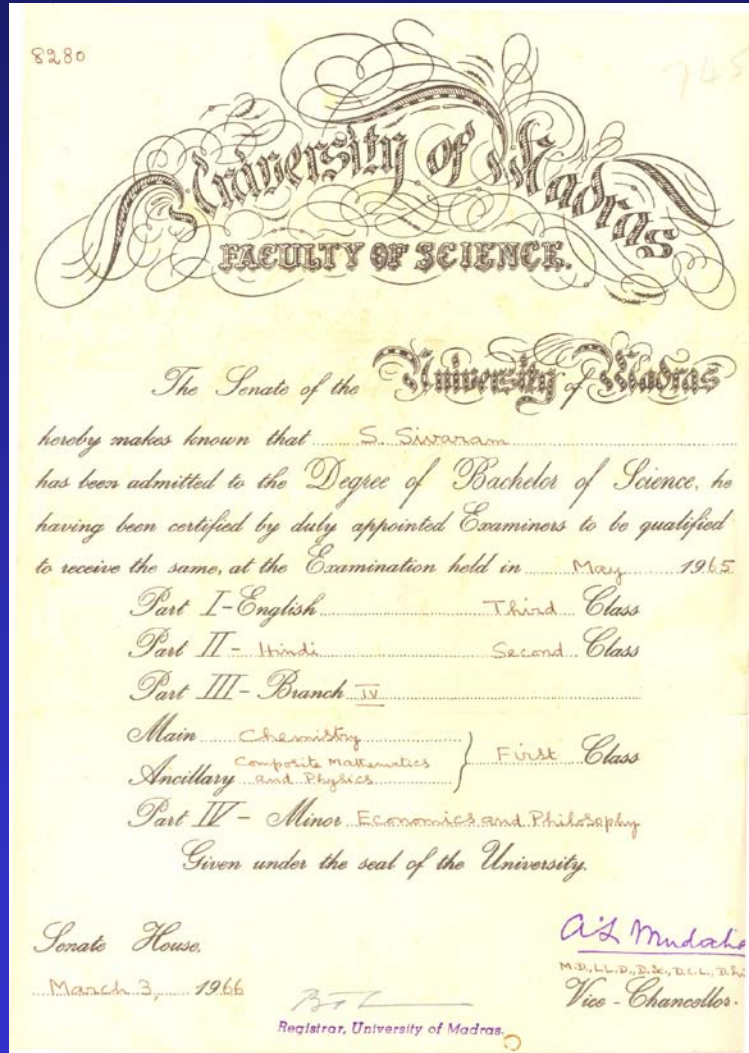 8280
745
University of Madras
FACULTY OF SCIENCE.
The Senate of the University of Madras
hereby makes known that S. Sivaram
has been admitted to the Degree of Bachelor of Science, he
having been certified by duly appointed Examiners to be qualified
to receive the same, at the Examination held in May 1965
Part I - English Third Class
Part II - Hindi Second Class
Part III - Branch IV
Main Chemistry
Ancillary Composite Mathematics and Physics } First Class
Part IV - Minor Economics and Philosophy
Given under the seal of the University.
Senate House,
March 3, 1966
M.D., LL.D., D.Sc., D.C.L.,
Vice-Chancellor.
Registrar, University of Madras.